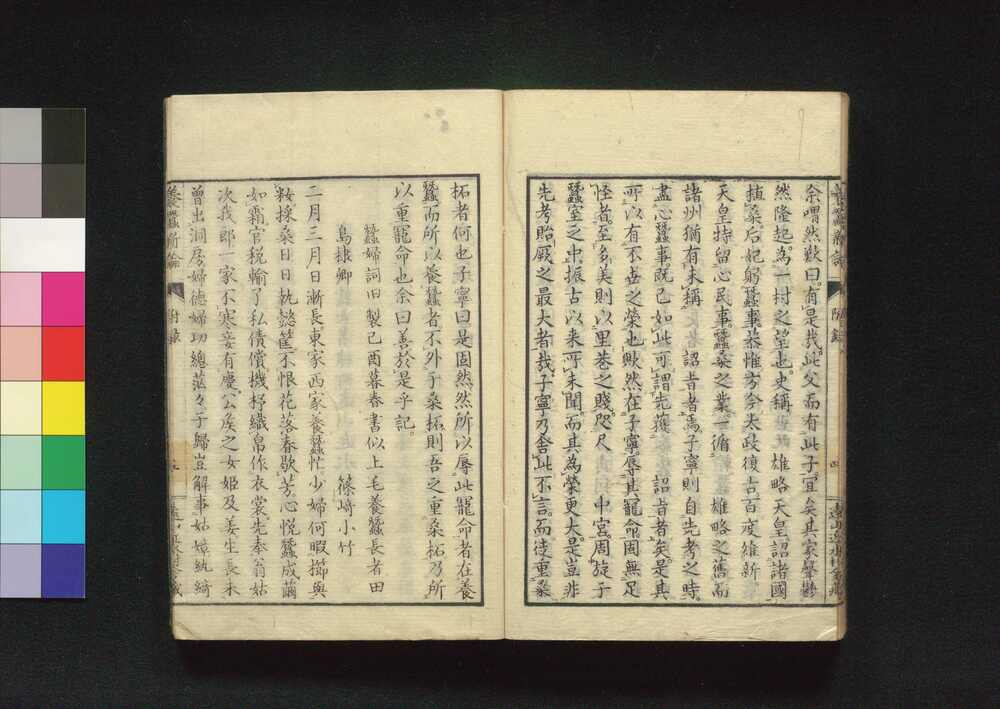 余喟然歎曰有是哉此父而有此子宜矣其家聲鬱
然隆起為一村之望也史稱　雄略天皇詔諸國
植桑后妃躬蠶事恭惟方今太政復古百度維新
天皇特留心民事蠶桑之業一循　雄略之舊而
諸州猶有未稱　詔旨者焉子寧則自先考之時
盡心蠶事既已如此可謂先獲　詔旨者矣是其
所以有不世之榮也歟然在子寧辱其寵命固無足
怪者至多美則以里巷之賤咫尺　中宮周旋于
蠶室之中振古以来所未聞而其為榮更大是豈非
先考貽厥之最大者哉子寧乃舍此不言而徒重桑
拓者何也子寧曰是固然然所以辱此寵命者在養
蠶而所以養蠶者不外于桑拓則吾之重桑拓乃所
以重寵命也余曰善於是乎記
蠶婦詞旧製己酉暮春書似上毛養蠶長者田
島棣卿　篠崎小竹
三月三月日漸長東家西家養蠶忙少婦何暇擲與
籹採桑日日執懿筐不恨花落春歇芳心悅蠶成繭
如霜官税輸了私債償機杼織帛作衣裳先奉翁姑
次我郎一家不寒妾有慶公侯之女姬及姜生長未
曾出洞房婦德婦功總茫々于歸豈解事姑嫜紈綺
養蠶新論
附録
四
養蠶新論
附録
五